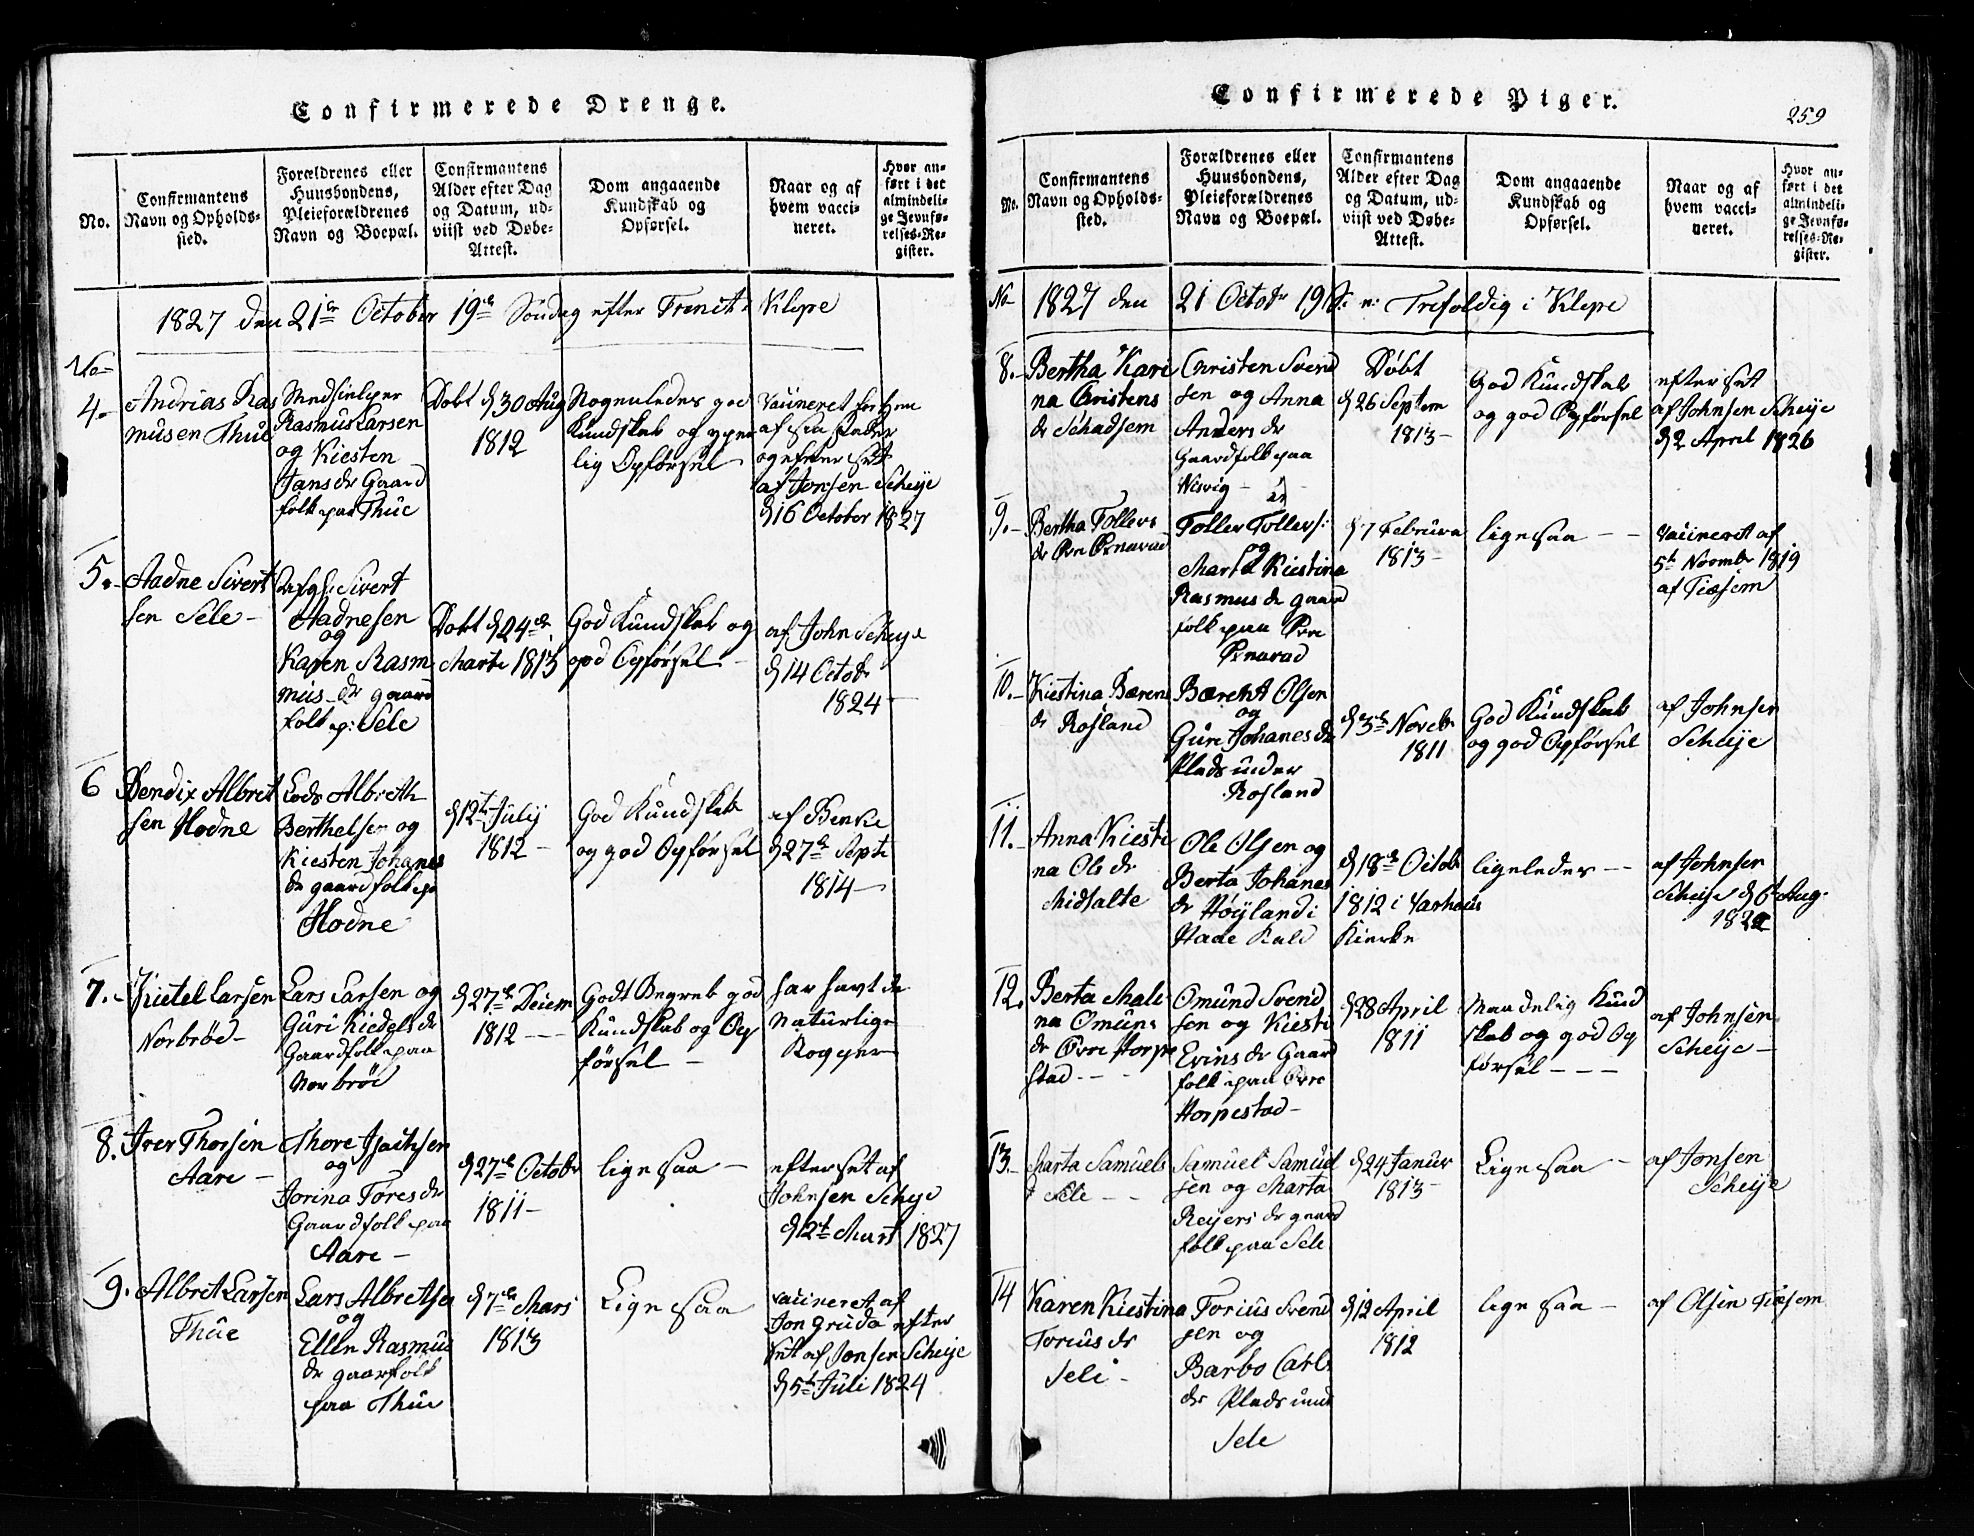 Confirmerede Drenge.
No.
Confirmantens
Navn og Opholds-
sted.
Forældrenes eller
Huusbondens,
Pleieforældrenes
Navn og Boepæl.
Confirmantens
Alder efter Dag
og Datum, ud-
viist ved Døbe-
Attest.
Dom angaaende
Kundskab og
Opførsel.
Naar og af
hvem vacci-
neret.
Hvor an-
ført i det
almindeli-
ge Jevnfø-
relses-Re-
gister.
1827 den 21de October 19de Søndag efter Trenit: Klepe
No
4-
Andrias Ras
musen Thue
Medhielper
Rasmus Larsen
og Kiesten
Jans dr Gaard
folk paa Thue
Døbt d 30 Aug
1812
Nogenledes god
Kundskab og
lig Opførsel
Vacineret
af
og efter set
af Jonsen Scheije
d 16 October 1827
5.
Aadne Sivert
sen Sele
Sivert
Aadnesen
og
Karen Rasm
mus dr gaard
folk p: Sele
Døbt d 24de
Marti 1813
God Kundskab og
god Opførsel
af John Scheije
d 14 Octob:
1824
6
Bendix Albret
sen Hodne
Lods Albreth
Berthelsen og
Kiesten Johanes
dr gaardfolk pa
Hodne
d 12t Julij
1812
God Kundskab
og god Opførsel
af Benke
d 27de Septr
1814
7.
Kietel Larsen
Norbrød
Lars Larsen og
Guri Kiedels dr
Gaardfolk paa
Norbrød
d 27de Decem
1812
Godt Begreb god
Kundskab og Op
førsel
har havt de
Naturlige
Kopper
8.
Iver Thorsen
Aare
Thore Isachsen
og
Jorina Tores dr
Gaardfolk paa
Aare
d 27de Octobr
1811
lige saa
efter set af
Johnsen Scheije
d 12t Mart 1827
9.
Albret Larsen
Thue
Lars Albretsen
og
Ellen Rasmus
dr gaarfolk
paa Thue
d 7de Mars
1813
Lige saa
vacineret af
Jon Gruda efter
set af Jonsen Scheije
d 5t Juli 1824
Confirmerede Piger.
259
No.
Confirmantens
Navn og Opholds-
sted.
Forældrenes eller
Huusbondens,
Pleieforældrenes
Navn og Boepæl.
Confirmantens
Alder efter Dag
og Datum, ud-
viist ved Døbe-
Attest.
Dom angaaende
Kundskab og
Opførsel.
Naar og af
hvem vacci-
neret.
Hvor an-
ført i det
almindeli-
ge Jevnfø-
relses-Re-
gister.
No 1827 den 21 Octobr 19 S: e: Trefoldig i Klepe
8.
Bertha Kari
na Christens
dr
Christen Svend
sen og Anna
Anders dr
Gaardfolk paa
Døbt
d 26 Septem
1813
God Kundskab
og god Opførsel
efter set
af Johnsen Scheije
d 2 April 1826
9.
Bertha Tollevs
dr Øvre
Tollev Tollevs:
og
Marta Kiestina
Rasmus dr gaard
folk paa Øvre
d 7 Februra
1813
lige saa
Vacineret af
5t Novmbr 1819
af Tiøsem
10.
Kiestina Bærens
dr Rosland
Bærent Olsen
og
Guri Johanes dr
Plads under
Rosland
d 3de Novebr
1811
God Kundskab
og god Opførsel
af Johnsen
Scheije
11.
Anna Kiesti
na Ols dr
Midtalte
Ole Olsen og
Berta Johanes
dr Høyland i
Haae
d 18de Octobr
1812 i Varhoug
Kierke
ligeledes
af Johnsen
Scheije d 6t Aug.
12.
Berta Male
na Omuns
dr Øvre Horpe
stad
Omund Svend
sen og Kiesti
Evins dr Gaard
folk paa Øvre
Horpestad
d 28 April
1811
Maadelig Kund
skab og god Op
førsel
af Johnsen
Scheije
13.
Marta Samuels
Sele
Samuel Samuel
sen og Marta
Reijers dr gaard
folk paa Sele
d 24 Januar
1813
Lige saa
af Jonsen
Scheije
14
Karen Kiestina
Torius dr
Sele
Torius Svend
sen og
Barbo Carls
dr Plads und
Sele
d 12 April
1812
lige saa
af Olsen Tiøsem